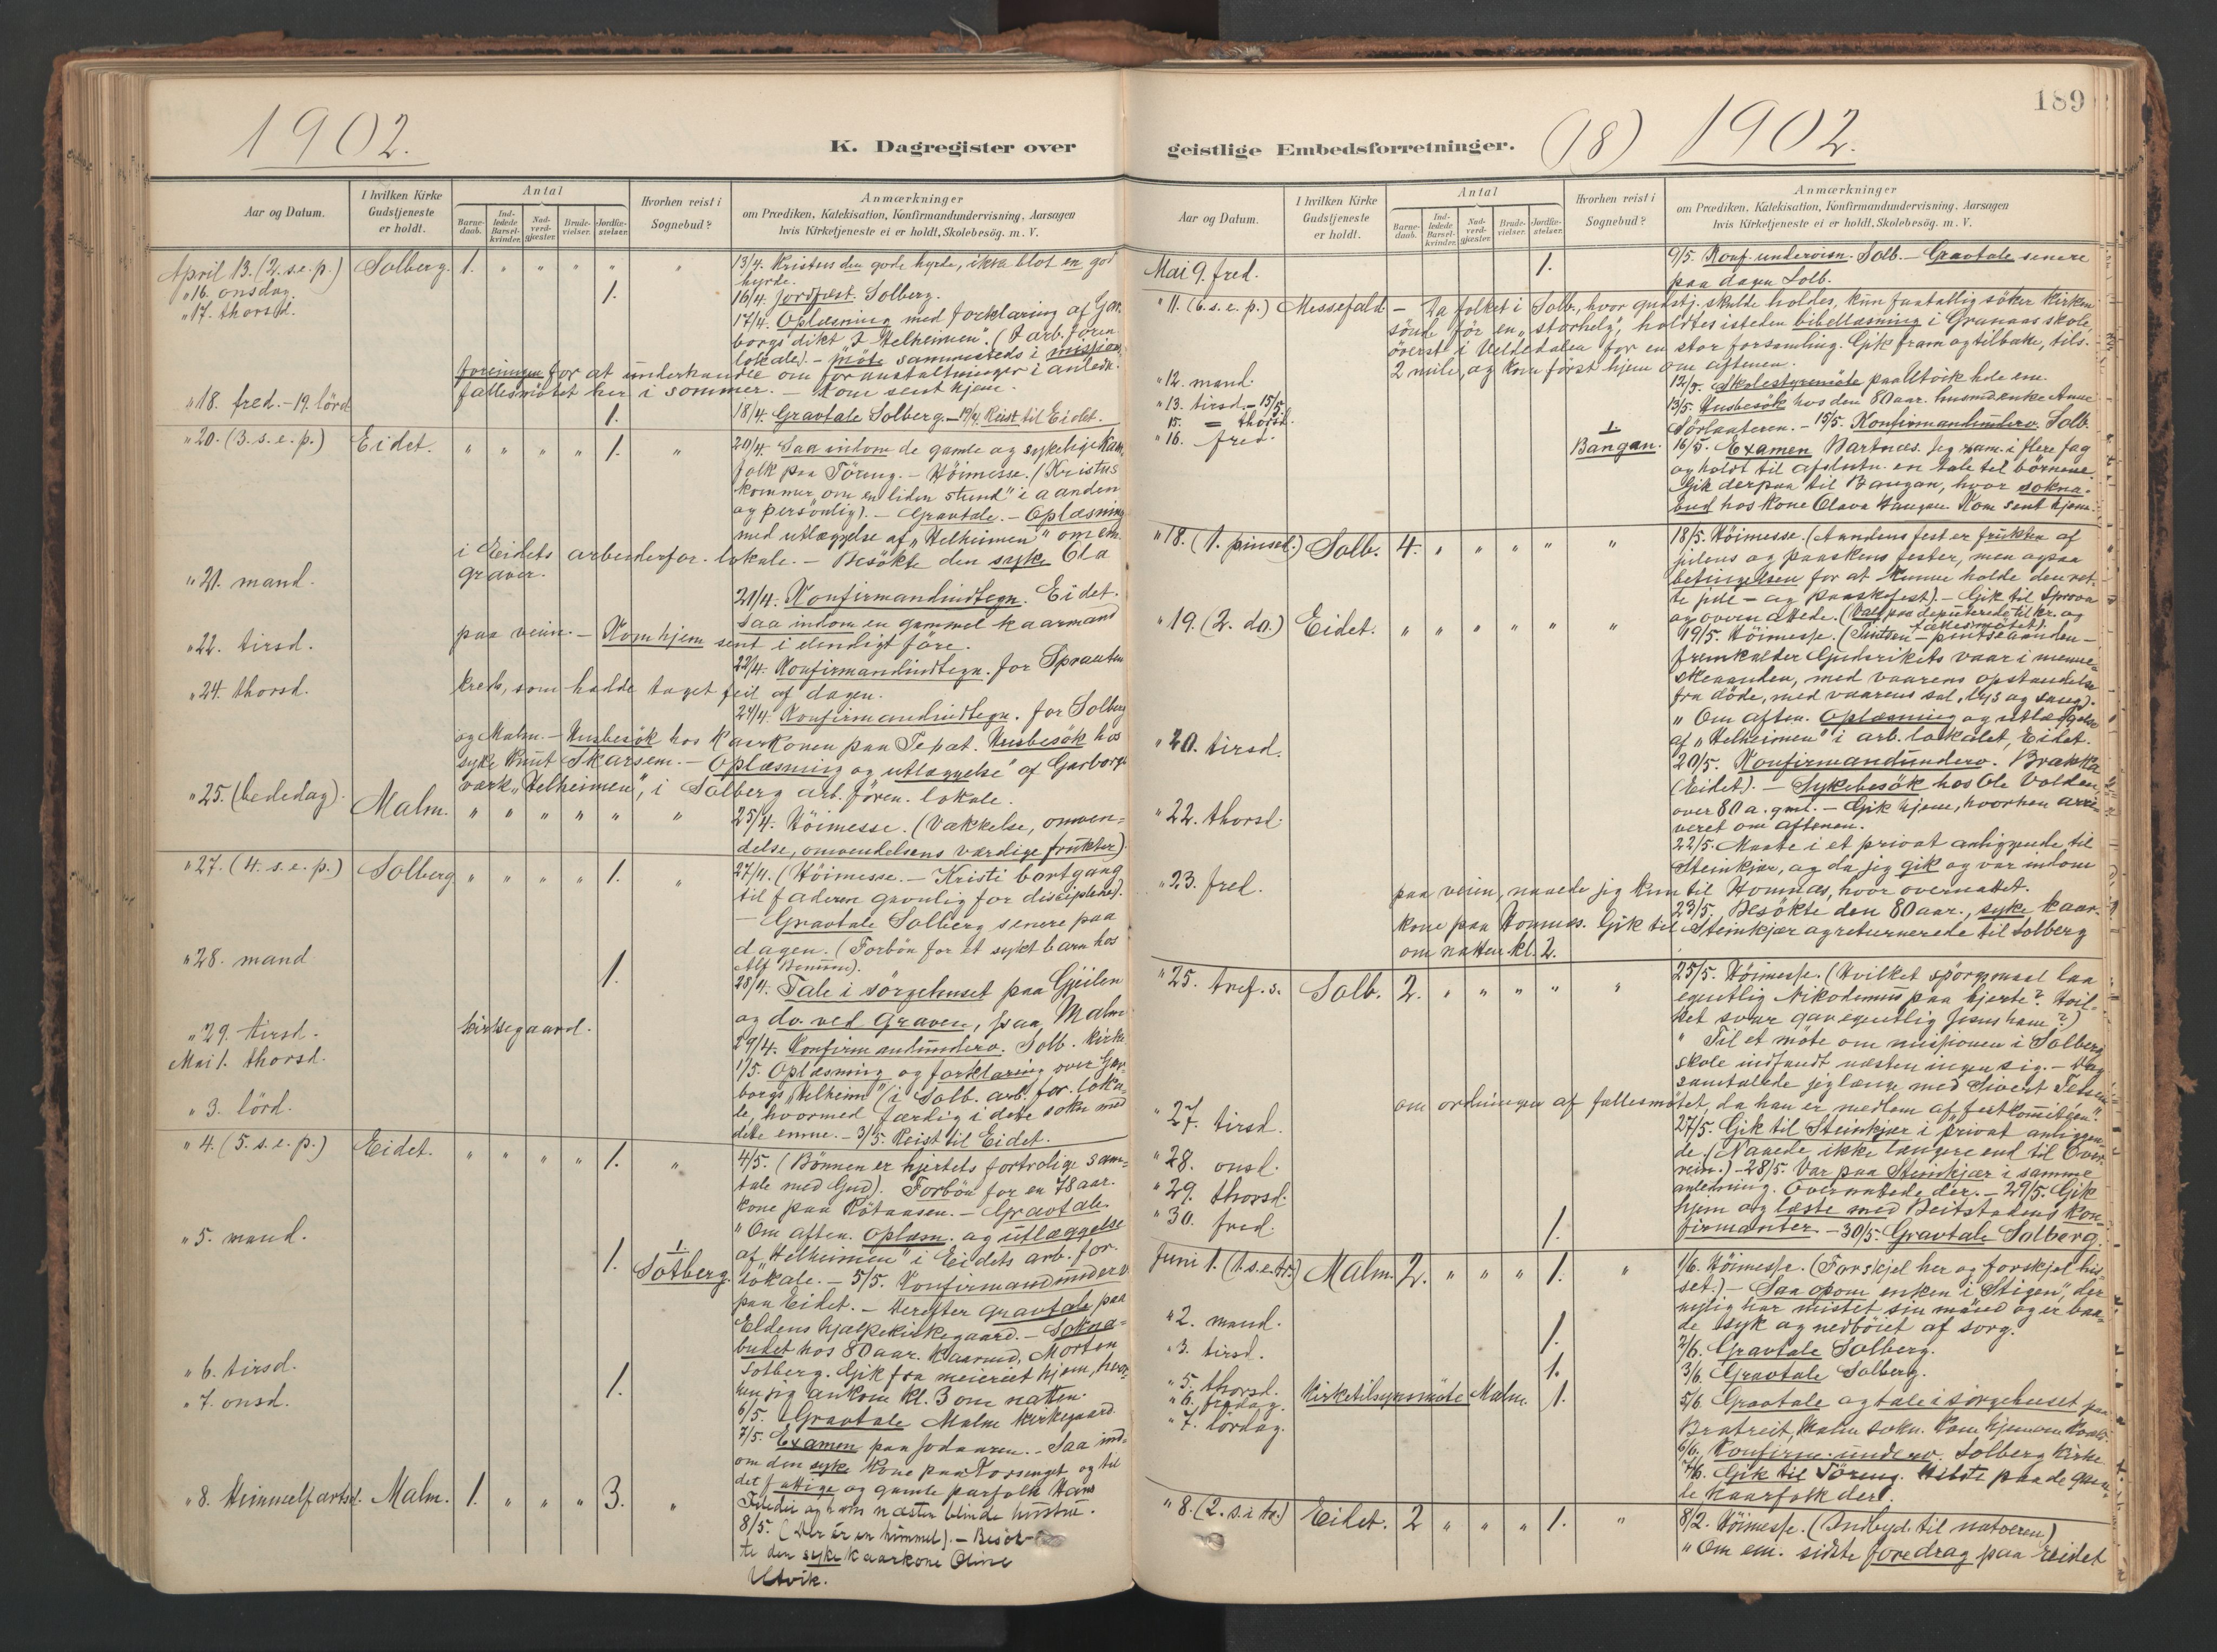 1902.
K. Dagregister over
Aar og Datum.
I hvilken Kirke Gudstjeneste er holdt.
Antal
Barne-daab.
Ind-ledede Barsel-kvinder.
Nad-verd-gjæster.
Brude-vielser.
Jordfæ-stelser.
Hvorhen reist i Sognebud?
Anmærkninger
om Prædiken, Katekisation, Konfirmandundervisning, Aarsagen
hvis Kirketjeneste ei er holdt, Skolebesøg. m. V.
April 13. (2. s. e. p.) Solberg. 1. " " " " " 13/4. Kristus den gode hyrde, ikke blot en god
hyrde.
" 16. onsdag. 1. 16/4. Jordfæst. Solberg.
" 17. thorsd. 17/4. Oplæsning med forklaring af Gar-
borgs dikt "I Helheimen". (I arb. foren.
lokale). - Møte sammesteds i missions-
foreningen for at underhandle om foranstaltninger i anledn.
fællesmötet her i sommer. - Kom sent hjem.
" 18. fred. - 19. lörd. 1. 18/4. Gravtale Solberg. - 19/4. Reist til Eidet.
" 20. (3. s. e. p.) Eidet. " " " " 1. " 20/4. Saa indom de gamle og sykelige kaar-
folk paa Töring. - Höimesse. (Kristus
kommer "om en liden stund" i aanden
og personlig). - Gravtale. - Oplæsning
med utlæggelse af "Helheimen" om em.
i Eidets arbeiderfor. lokale. - Besökte den syke Ola
Graver.
" 21. mand. 21/4. Konfirmandindtegn. Eidet.
Saa indom en gammel kaarmand
paa veien. - Kom hjem sent i elendigt före.
" 22. tirsd. 22/4. Konfirmandindtegn. for Sprauten
kreds, som hadde taget feil af dagen.
" 24. thorsd. 24/4. Konfirmandindtegn. for Solberg
og Malm. - Husbesök hos kaarkonen paa Tepat. Husbesök hos
syke Knut Skarsem. - Oplæsning og utlæggelse af Garborgs
værk "Helheimen", i Solberg arb. fören. lokale.
" 25. (bededag). Malm. " " " " " " 25/4. Höimesse. (Vækkelse, omven-
delse, omvendelsens værdige frukter).
" 27. (4. s. e. p.) Solberg " " " " 1. " 27/4. (Höimesse. - Kristi bortgang
til faderen gavnlig for disciplene).
- Gravtale Solberg senere paa
dagen. (Forbön for et sykt barn hos
Alf Benum).
" 28. mand 1. 28/4. Tale i sörgehuset paa Gjeilen
og do. ved Graven, paa Malm
kirkegaard.
" 29. tirsd. 29/4. Konfirmandunderv. Solb. kirke
Mai 1. thorsd. 1/5. Oplæsning og forklaring over Gar-
borgs "Helheim" (i Solb. arb. for. loka-
le, hvormed færdig i dette sokn med
" 3. lörd. dette emne. - 3/5. Reist til Eidet.
" 4. (5. s. e. p.) Eidet. " " " " 1. " 4/5. (Bönnen er hjertets fortrolige sam-
tale med Gud). Forbön for en 78 aar.
kone paa Rötaasen. - Gravtale.
" Om aften. Oplæsn. og utlæggelse
af "Helheimen" i Eidets arb. for.
" 5. mand. 1. 1. Solberg. lokale. - 5/5. Konfirmandunderv
paa Eidet. - Derefter gravtale paa
Eldens hjælpekirkegaard. - Sokne-
budet hos 80 aar. kaarmd. Morten
Solberg. Gik fra meieriet hjem, hvor-
hen jeg ankom kl. 3 om natten.
" 6. tirsd. 1. 6/5. Gravtale Malm kirkegaard
" 7. onsd. 7/5. Examen paa Jodaaren. - Saa ind-
om den syke kone paa og til
det fattige og gamle parfolk Hans
og hans næsten blinde hustru.
" 8. Himmelfartsd. Malm. 1. " " " 3. " 8/5. (Der er en himmel). - Besök-
te den syke kaarkone Oline
Utvik.
189
(18) 1902.
geistlige Embedsforretninger.
Aar og Datum.
I hvilken Kirke Gudstjeneste er holdt.
Antal
Barne-daab.
Ind-ledede Barsel-kvinder.
Nad-verd-gjæster.
Brude-vielser.
Jordfæ-stelser.
Hvorhen reist i Sognebud?
Anmærkninger
om Prædiken, Katekisation, Konfirmandundervisning, Aarsagen
hvis Kirketjeneste ei er holdt, Skolebesøg. m. V.
Mai 9. fred. 1. 9/5. Konf. undervisn. Solb. - Gravtale senere
paa dagen Solb.
" 11. (6. s. e. p.) Messefald - Da folket i Solb., hvor gudstj. skulde holdes, kun faatallig söker kirken
sönd. för en "storhelg", holdtes isteden bibellæsning i Granaas skole,
överst i Heldedalen for en stor forsamling. Gik fram og tilbake, tils.
2 mile, og kom först hjem om aftenen.
" 12. mand. 12/5. Skolestyremöte paa Utvik hele em.
" 13. tirsd. - 15/5. 13/5. Husbesök hos den 80 aar. husmdenke Anne
15. = thorsd. Sörlauteren. - 15/5. Konfirmandunderv. Solb.
" 16. fred. 1. Bangan. 16/5. Examen Bartnes. Jeg exam. i flere fag
og holdt til afslutn. en tale til börnene.
Gik derpaa til Bangan, hvor sokne-
bud hos kone Olava Bangan. Kom sent hjem.
" 18. (1. pinsed.) Solb. 4. " " " " " 18/5. Höimesse. (Aandens fest er frukten af
julens og paaskens fester, men ogsaa
betingelsen for at kunne holde den ret-
te jule- og paaskefest). - Gik til Sprova
og overnattede. (Valg paa deputerede til kr. og
fællesmötet).
" 19. (2. do.) Eidet. " " " " " " 19/5. Höimesse. (Pintsen - pintseaanden -
fremkalder Gudsrikets vaar i menne-
skeaanden, med vaarens opstandelse
fra döde, med vaarens sol, lys og sang).
" Om aften. Oplæsning og utlæggelse
af "Helheimen" i arb. lokalet, Eidet.
" 20. tirsd. 20/5. Konfirmandunderv. Brakka
(Eidet). - Sykebesök hos Ole Volden,
over 80 a. gml. - Gik hjem, hvorhen arri-
veret om aftenen.
" 22. thorsd. 22/5. Maate i et privat anliggende til
Steinkjær, og da jeg gik og var indom
paa veien, naaede jeg kun til Homnæs, hvor overnattet.
" 23. fred. 23/5. Besökte den 80 aar., syke kaar-
kone paa Homnæs. Gik til Steinkjær og returnerede til Solberg
om natten kl. 2.
" 25. tref. s. Solb. 2. " " " " " 25/5. Höimesse. (Hvilket spörgsmaal laa
egentlig Nikodemus paa hjerte? Hvil-
ket svar gav egentlig Jesus ham?)
" Til et möte om missionen i Solberg
skole indfandt næsten ingen sig. - Dog
samtalede jeg længe med Sivert
om ordningen af fællesmötet, da han er medlem af "festkomiteen".
" 27. tirsd. 27/5. Gik til Steinkjær i privat anliggen-
de. (Naaede ikke længere end til
" 28. onsd. rein.) - 28/5. Var paa Steinkjær i samme
anledning. Overnattede der. - 29/5. Gik
" 29. thorsd. hjem og læste med Beitstadens kon-
" 30. fred. 1. firmanter. - 30/5. Gravtale Solberg.
Juni 1. (1. s. e. tr.) Malm. 2. " " " 1. " 1/6. Höimesse. (Forskjel her og forskjel his-
set.) - Saa opom enken i "Stigen", der
nylig har mistet sin mand og er baa-
de syk og nedböiet af sorg.
" 2. mand. 1. 2/6. Gravtale Solberg.
" 3. tirsd. 1. 3/6. Gravtale Solberg.
" 5. thorsd. Kirketilsynsmöte Malm. 1. 5/6. Gravtale og tale i sörgehuset paa
Bratreit, Malm sokn. Kom hjem om kvæld.
" 6. fredag. 6/6. Konfirm. underv. Solberg kirke
" 7. lördag. 7/6. Gik til Töring. Hilste paa de gam-
le kaarfolk der.
" 8. (2. s. i tr.) Eidet. 2 " " " 1. " 8/2. Höimesse. (Indbyd. til natveren)
" Om em. sidste foredrag paa Eidet